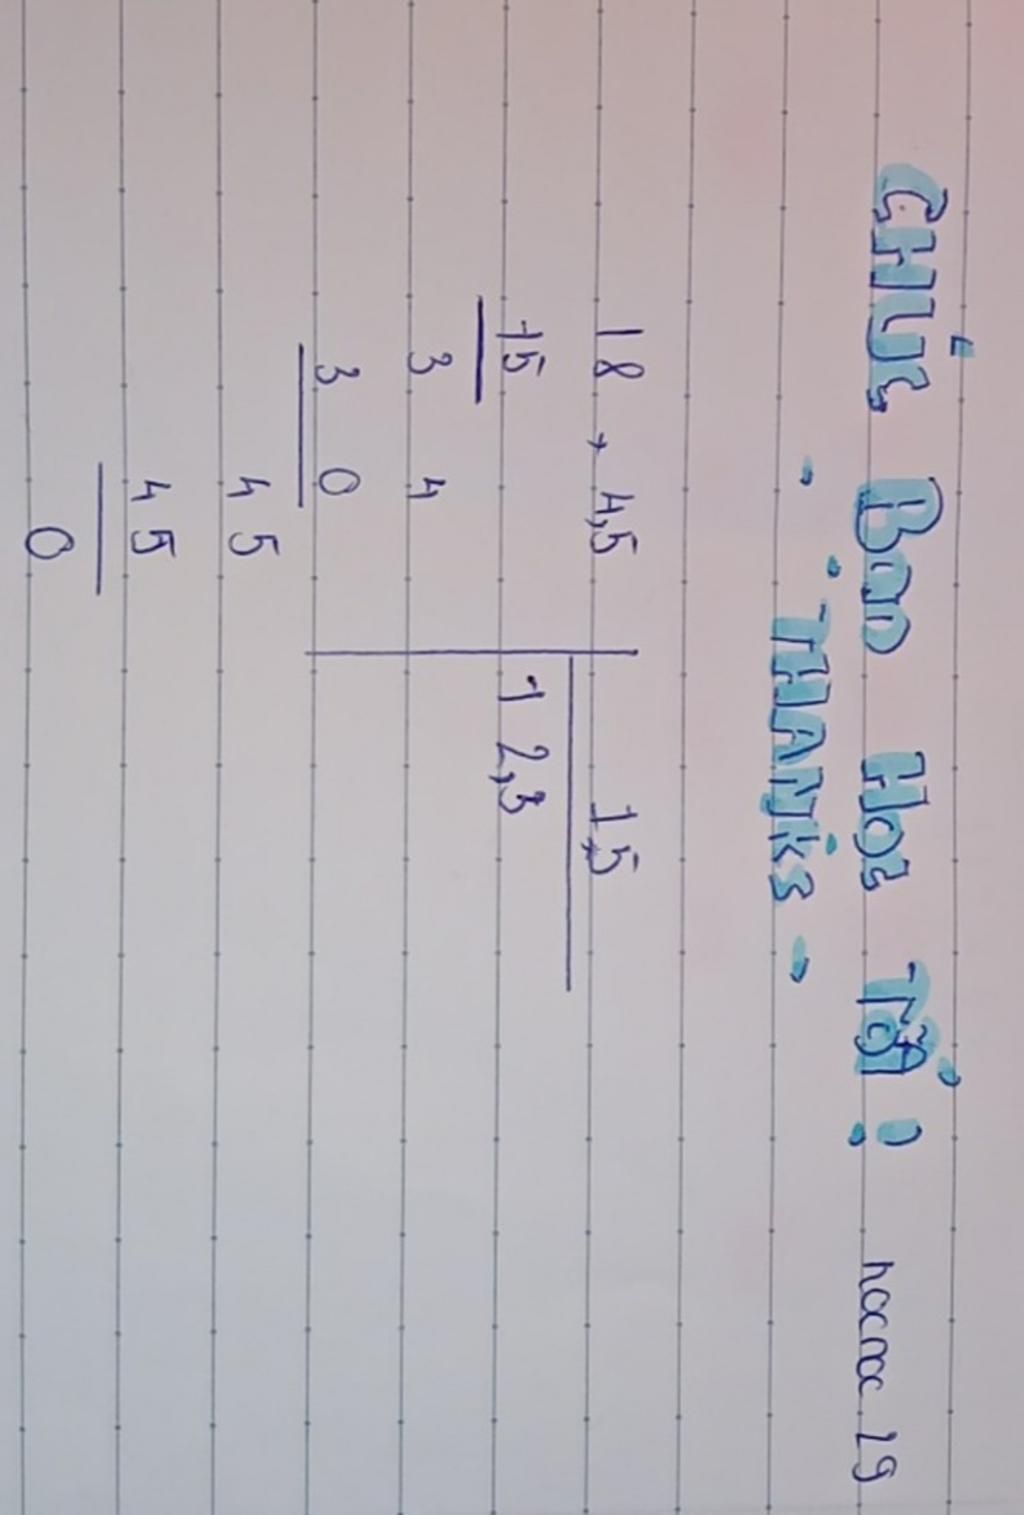 CHÚC BạN HọC TỐT !
nocnoc.29
- THANKS -
18,4,5 1,5
15 12,3
3 4
3 0
4 5
4 5
0